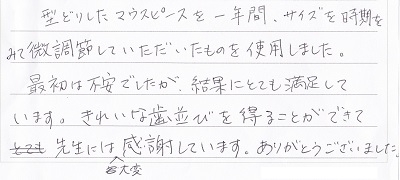 型どりしたマウスピースを一年間、サイズを時期を
みて微調節していただいたものを使用しました。
最初は不安でしたが、結果にとても満足して
います。きれいな歯並びを得ることができて
とても 先生には大変感謝しています。ありがとうございました。